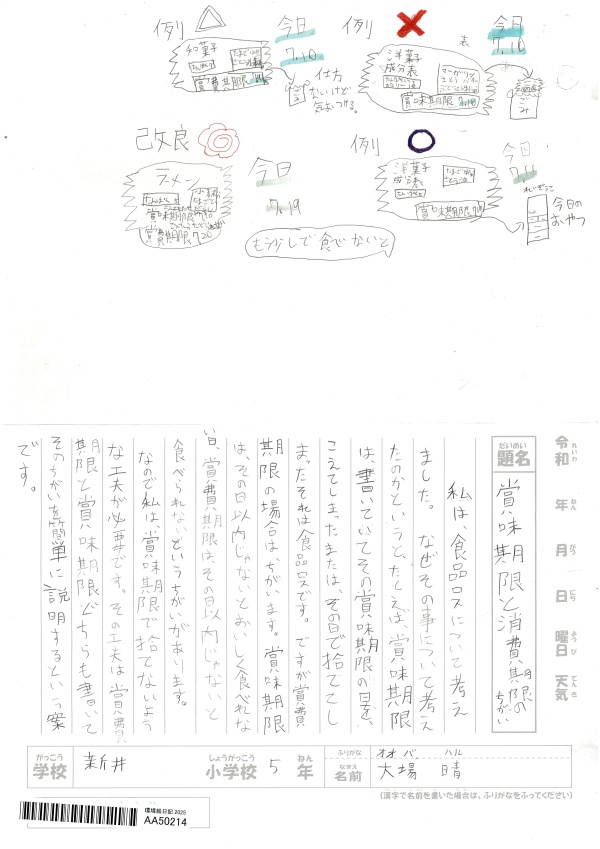 例り
和菓子
賞費期限
今日
7.10
仕方
ないけど
気おつける。
例り
表
洋菓子
成分表
マーガリン
賞味期限
今日
7.10
ごみ
改良
ラーメン
賞味期限
賞費期限7.20
今日
7.19
もう少しで食べないと
例り
洋菓子
成分表
賞味期限
今日
7.11
れいぞうこ
今日の
おやつ
令和 れいわ
年 ねん
月 がつ
日 にち
曜日 ようび
天気 てんき
だいめい
題名
賞味期限と消費期限のちがい
私は、食品ロスについて考え
ました。なぜその事について考え
たのかというと、たとえば、賞味期限
は、書いていてその賞味期限の日を、
こえてしまったまたは、その日で捨ててし
まったそれは食品ロスです。ですが賞費
期限の場合はちがいます。賞味期限
は、その日以内じゃないとおいしく食べれな
い日、賞費期限は、その日以内じゃないと
食べられないというちがいがあります。
なので私は、賞味期限で捨てないよう
な工夫が必要です。その工夫は賞費
期限と賞味期限どちらも書いて
そのちがいを簡単に説明するという案
です。
がっこう
学校
新井
しょうがっこう
小学校
5
ねん
年
ふりがな
オオバ ハル
なまえ
名前
大場 晴
(漢字で名前を書いた場合は、ふりがなをふってください)
環境絵日記 2025
AA50214